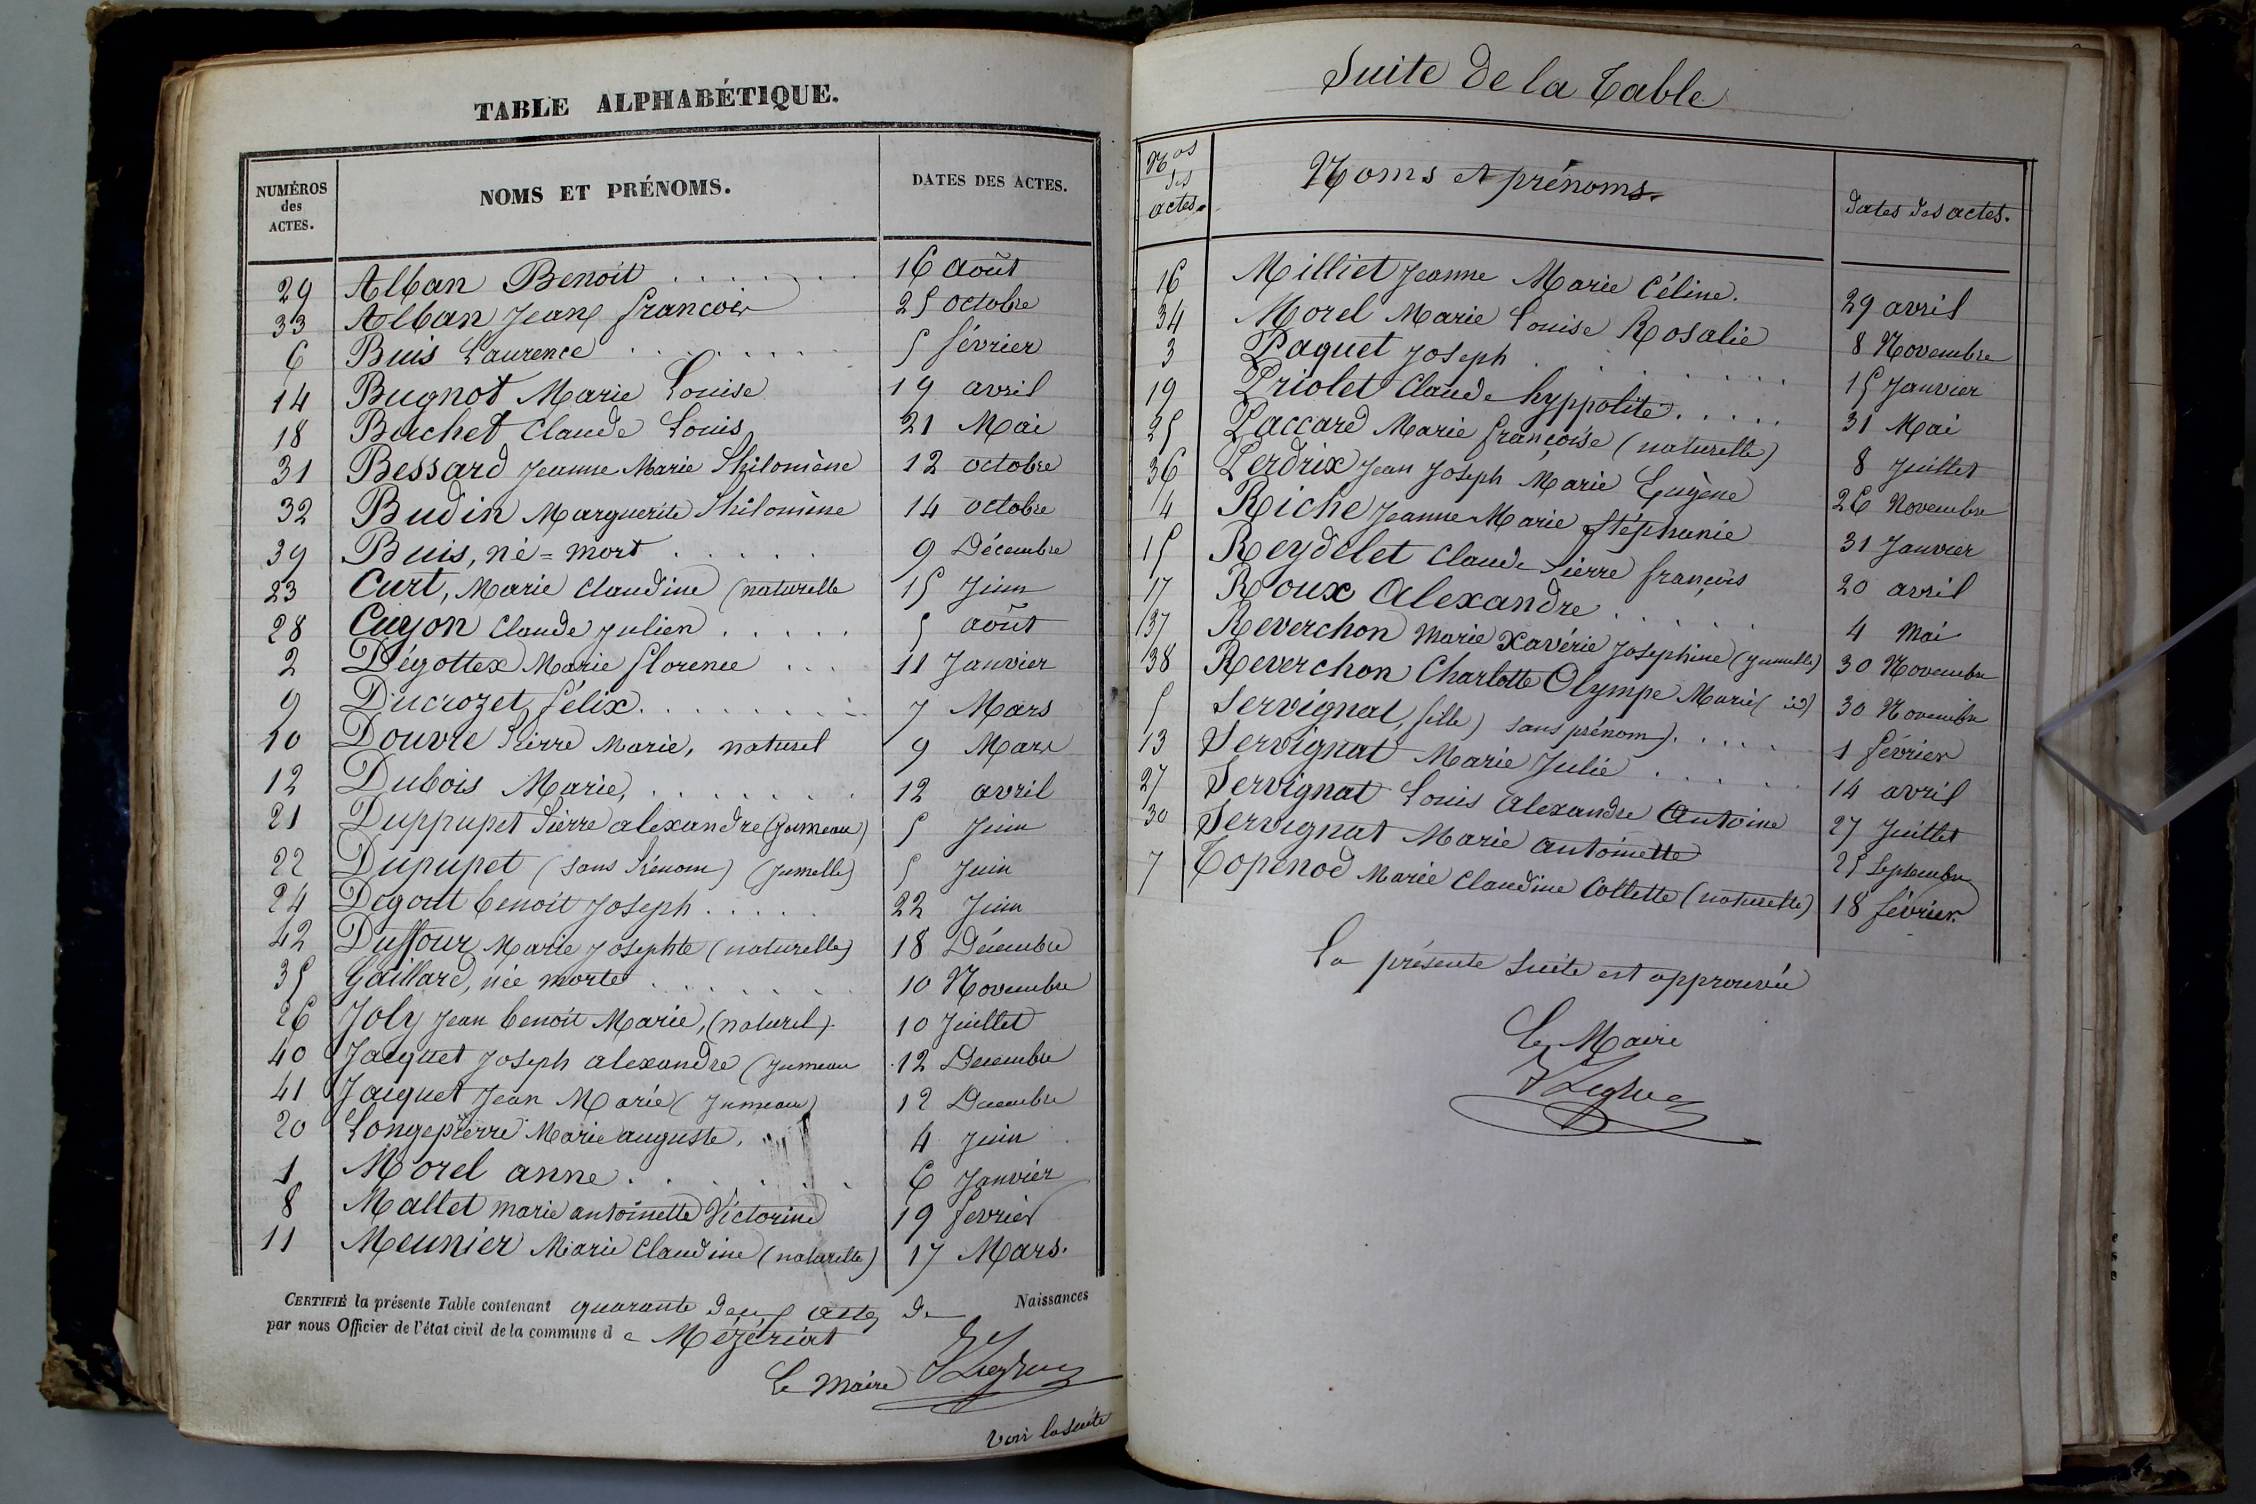 TABLE ALPHABÉTIQUE.
NUMÉROS des ACTES. NOMS ET PRÉNOMS. DATES DES ACTES.
29 Alban Benoit . . . . . . . 16 août
33 Alban Jean françois 25 octobre
6 Buis Laurence . . . . . . . 5 février
14 Bugnot Marie Louise 19 avril
18 Buchet Claude Louis 21 Mai
31 Bessard Jeanne Marie Philomène 12 octobre
32 Budin Marguerite Philomène 14 octobre
39 Buis, né=mort . . . . . 9 Décembre
23 Curt, Marie Claudine (naturelle 15 Juin
28 Cuyon Claude Julien . . . . . 5 août
2 Dégottex Marie florence . . . 11 Janvier
9 Ducrozet, félix . . . . . . . . 7 Mars
10 Douvre Pierre Marie, naturel 9 Mars
12 Dubois Marie, . . . . . . . 12 avril
21 Duppupet Pierre alexandre (Jumeau) 5 Juin
22 Dupupet (sans Prénom) (Jumelle) 5 Juin
24 Degout benoit Joseph . . . . . 22 Juin
42 Duffour Marie Josephte (naturelle) 18 Décembre
35 Gaillard, née morte . . . . . . . 10 Novembre
26 Joly Jean benoit Marie, (naturel). 10 Juillet
40 Jacquet Joseph alexandre (Jumeau 12 Decembre
41 Jacquet Jean Marie (Jumeau) 12 Decembre
20 Longepierre Marie auguste, 4 Juin
1 Morel anne . . . . . . . 6 Janvier
8 Mallet marie antoinette Victorine 19 fevrier
11 Meunier Marie Claudine (naturelle) 17 Mars.
CERTIFIÉ la présente Table contenant quarante deux actes de Naissances
par nous Officier de l'état civil de la commune de Mézériat
Le Maire
Voir la suite
Suite de la Table
Nos des actes. Noms et prénoms. dates des actes.
16 Milliet Jeanne Marie Céline. 29 avril
34 Morel Marie Louise Rosalie 8 Novembre
3 Paquet Joseph . . . . . . . 15 Janvier
19 Priolet Claude hyppolite . . . . . 31 Mai
25 Paccard Marie françoise (naturelle) 8 Juillet
36 Perdrix Jean Joseph Marie Eugène 26 Novembre
4 Riche Jeanne Marie Stéphanie 31 Janvier
15 Reydelet Claude Pierre françois 20 avril
17 Roux Alexandre . . . . . . 4 Mai
37 Reverchon Marie Xavérie Josephine (Jumelle) 30 Novembre
38 Reverchon Charlotte Olympe Marie (id) 30 Novembre
5 Servignat, (fille) sans prénom) . . . . . 1 février
13 Servignat Marie Julie . . . . . . 14 avril
27 Servignat Louis Alexandre Antoine 27 Juillet
30 Servignat Marie antoinette 25 Septembre
7 Topenod Marie Claudine Collette (naturelle) 18 février
La présente suite est approuvée
Le Maire